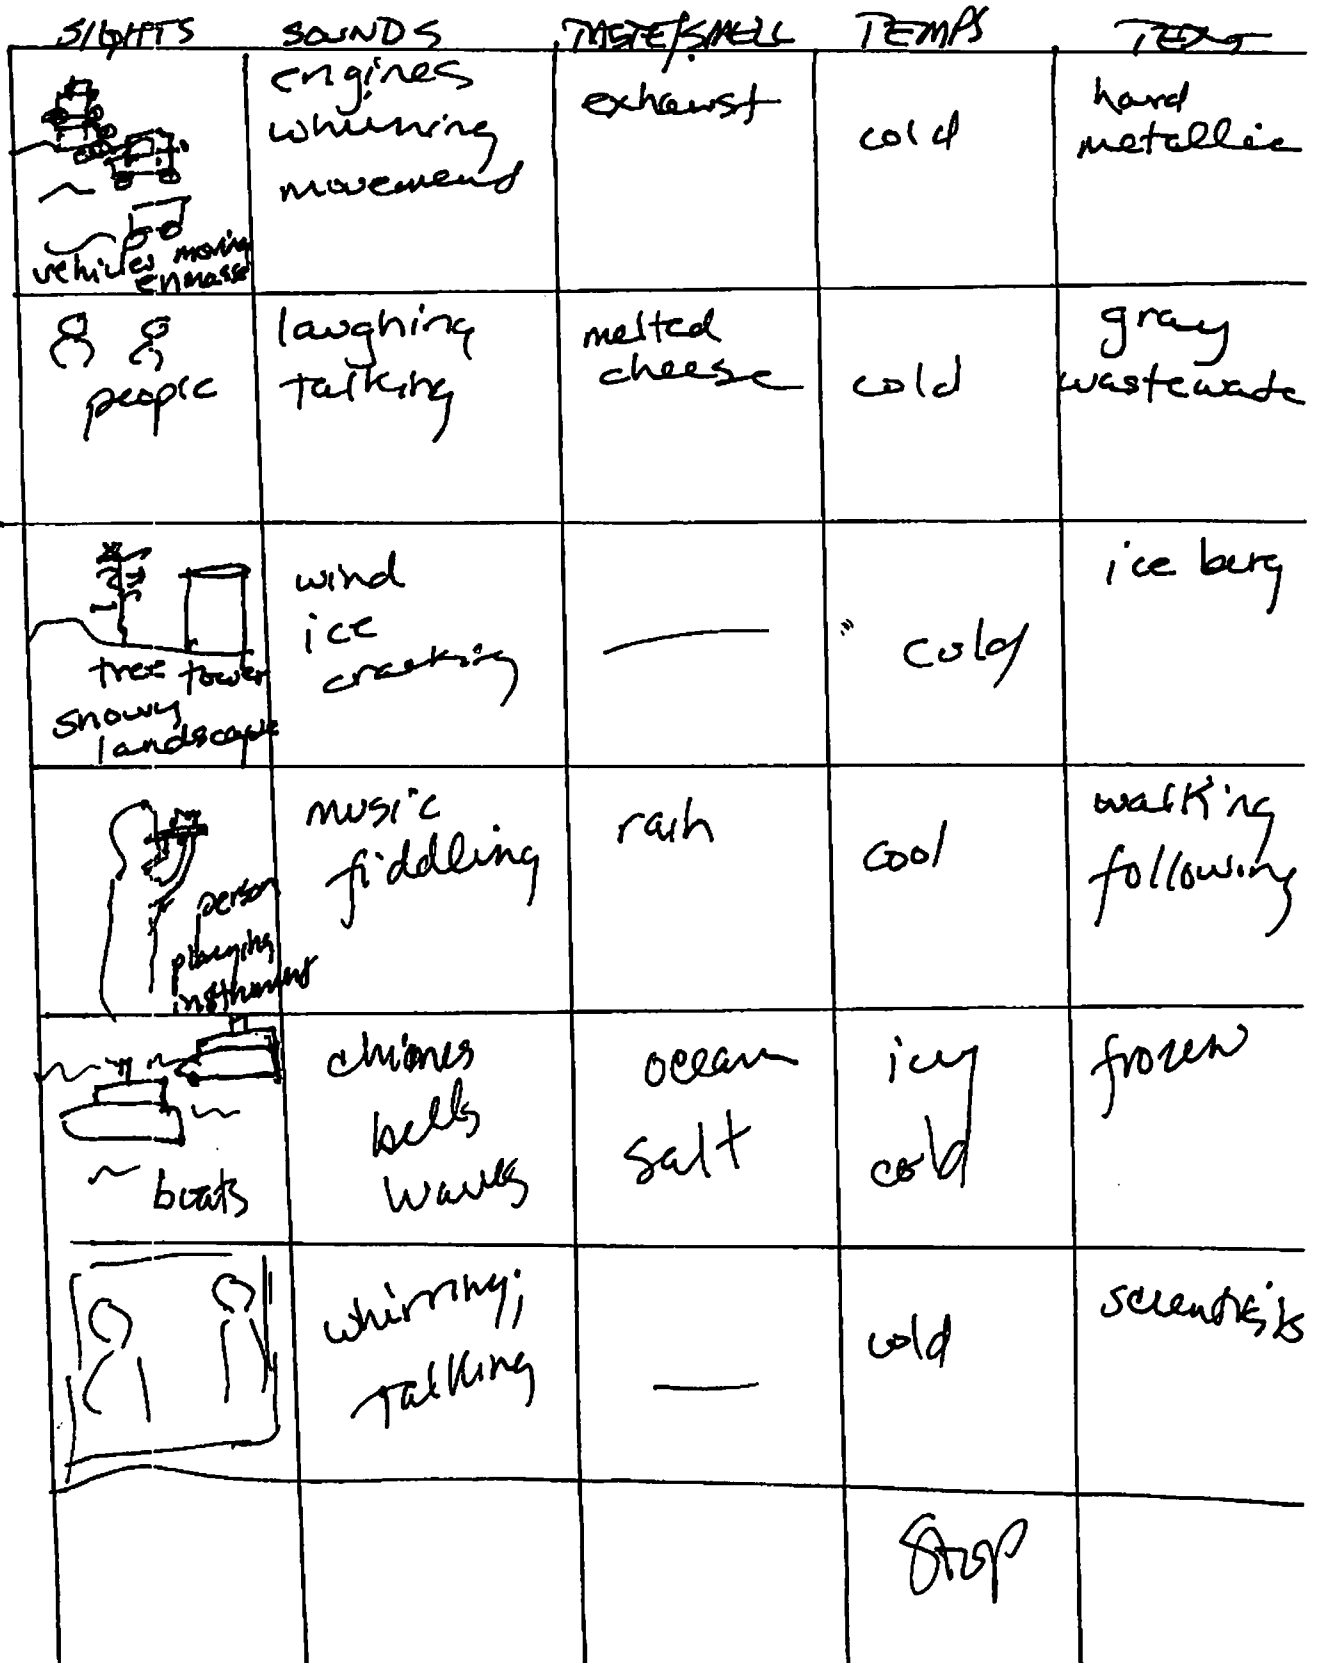 SIGHTS SOUNDS TASTE/SMELL TEMPS TEXT
engines
whirring
movement
exhaust
cold
hard
metallic
vehicles moving
en masse
people
laughing
talking
melted
cheese
cold
gray
tree tower
snowy
landscape
wind
ice
cracking
cold
ice berg
person
playing
instrument
music
fiddling
rain
cool
walking
following
boats
chimes
bells
waves
ocean
salt
icy
cold
frozen
whirring;
talking
cold
scientists
Stop